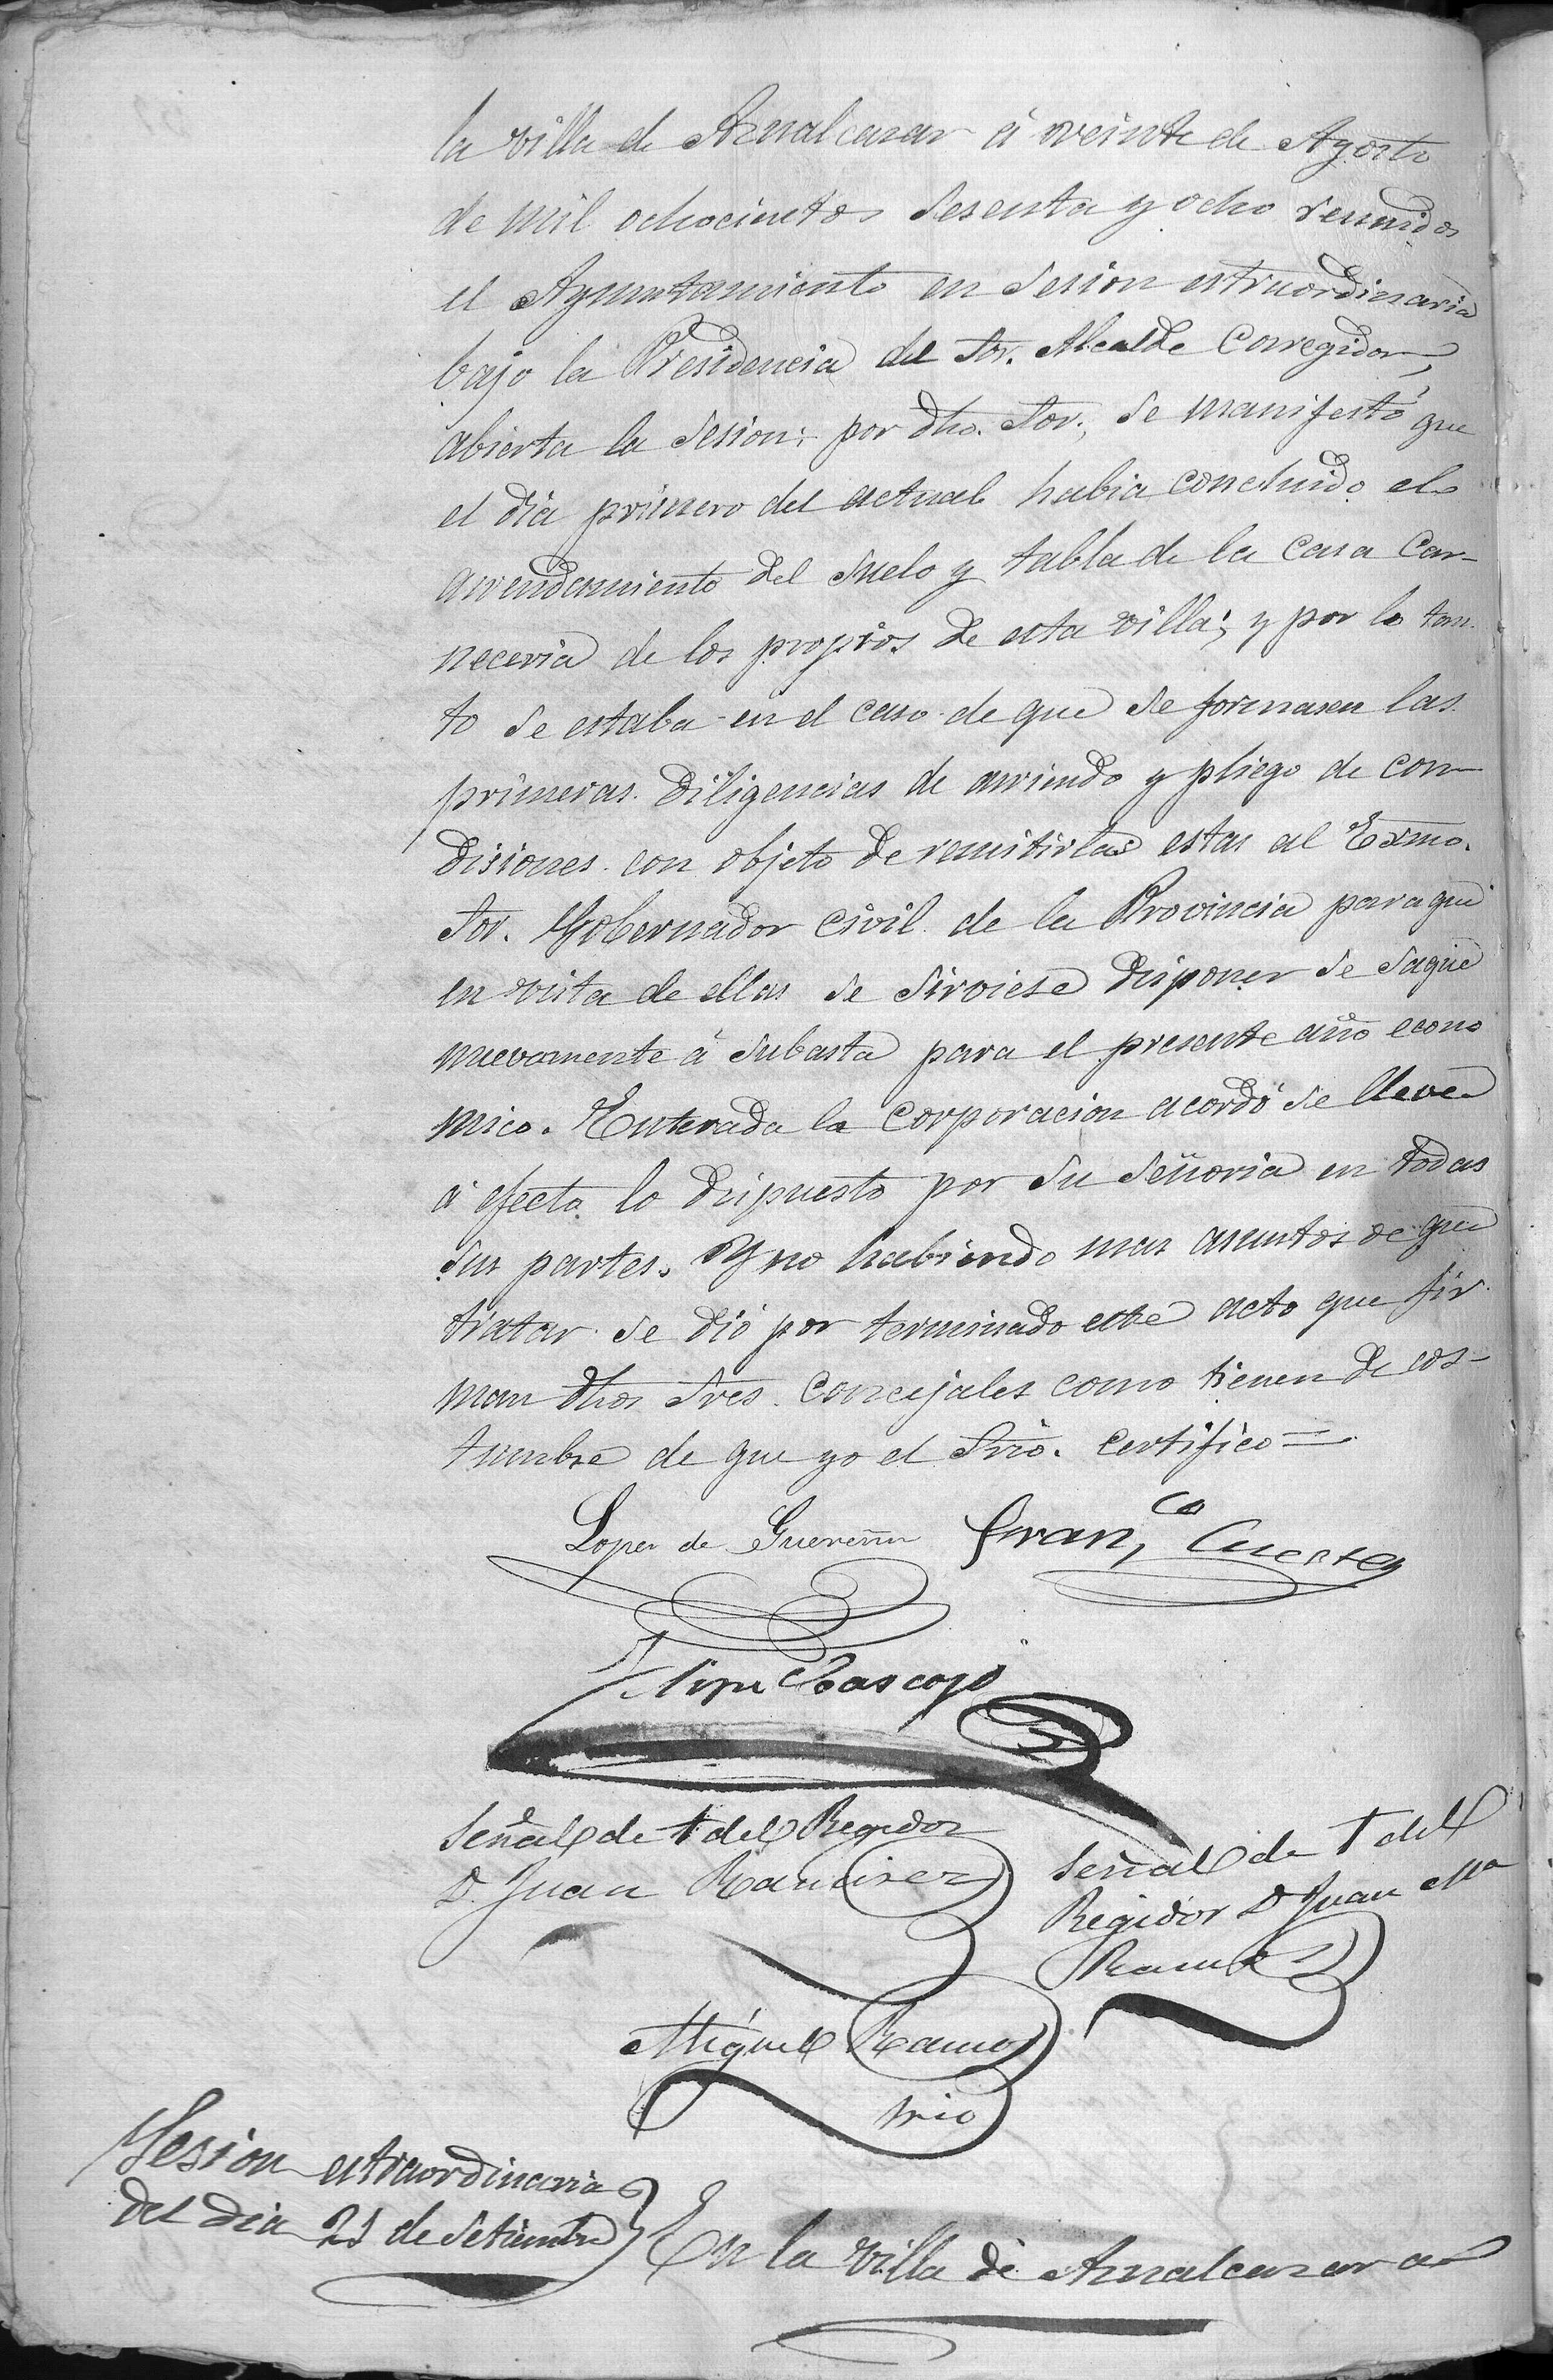 la villa de Aznalcazar á veinte de Agosto
de mil ochocientos sesenta y ocho reunidos
el Ayuntamiento en sesion estraordinaria
bajo la Presidencia del Sor. Alcalde Corregidor,
abierta la sesion; por dho. Sor., se manifestó que
el dia primero del actual habia concluido el
arrendamiento del suelo y tabla de la casa Car-
neceria de los propios de esta villa; y por lo tan-
to se estaba en el caso de que se formasen las
primeras diligencias de arriendo y pliego de con-
disiones con objeto de remitirlas estas al Exmo.
Sor. Gobernador Civil de la Provincia para que
en vista de ellas se sirviese disponer se saque
nuevamente á subasta para el presente año econo
mico. Enterada la Corporacion acordó se lleve
á efecto lo dispuesto por su señoria en todas
sus partes. Y no habiendo mas asuntos de que
tratar se dió por terminado este acto que fir-
man dhos Sres. Concejales como tienen de cos-
tumbre de que yo el Srio. certifico=
Lopez de Guereñu Fran,co Cuesta
Felipe Bascozo
Señal de † del Regidor
D. Juan Ramirez
Señal de † del
Regidor D Juan Ma
Ramos
Miguel Ramos
Srio
Sesion estraordinaria
del dia 25 de Setiembre
En la villa de Aznalcazar a